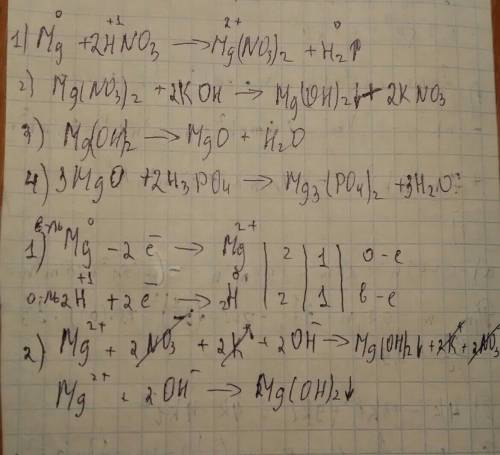 1) Mg⁰ + 2H⁺¹NO₃ → Mg²⁺(NO₃)₂ + H₂⁰↑
2) Mg(NO₃)₂ + 2KOH → Mg(OH)₂↓ + 2KNO₃
3) Mg(OH)₂ → MgO + H₂O
4) 3MgO + 2H₃PO₄ → Mg₃(PO₄)₂ + 3H₂O
1) Mg⁰ - 2e⁻ → Mg²⁺ | 2 | 1 | о-е
2H⁺¹ + 2e⁻ → 2H⁰ | 2 | 1 | в-е
2) Mg²⁺ + 2NO₃⁻ + 2K⁺ + 2OH⁻ → Mg(OH)₂↓ + 2K⁺ + 2NO₃⁻
Mg²⁺ + 2OH⁻ → Mg(OH)₂↓